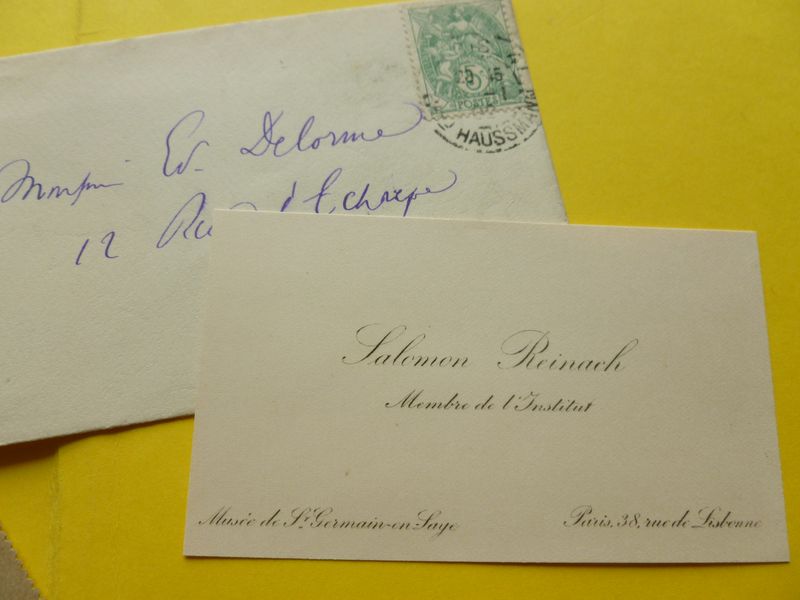 5
POSTES
HAUSSMANN
Ed. Delorme
12 Rue d'
Salomon Reinach
Membre de l'Institut
Musée de St. Germain-en-Laye
Paris, 38, rue de Lisbonne